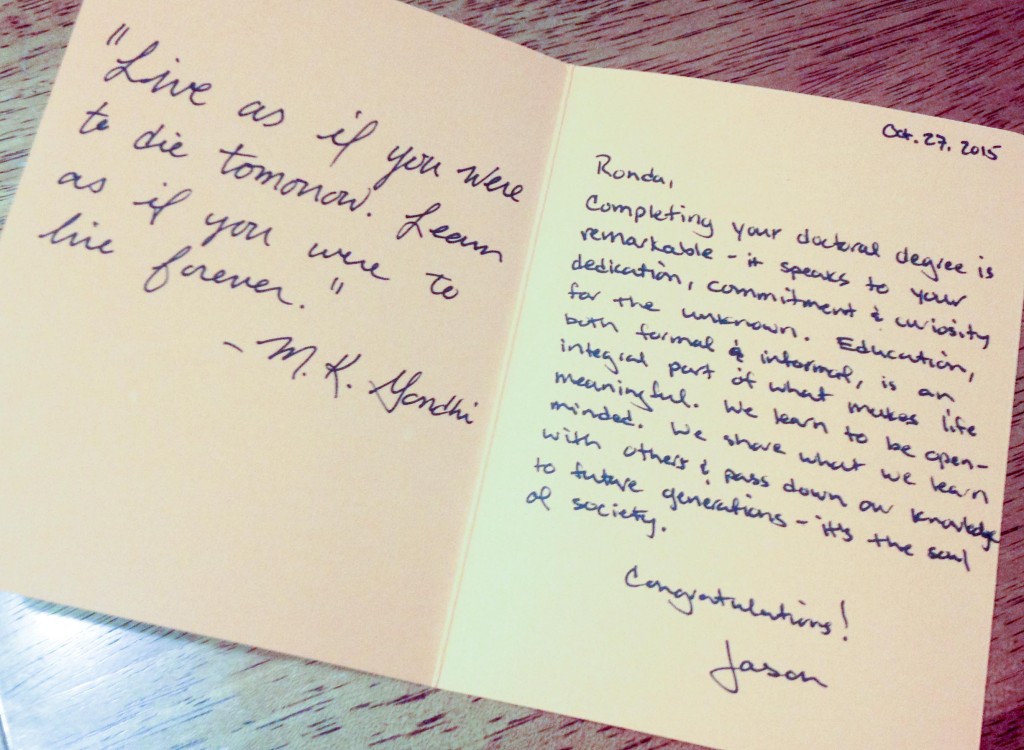 "Live as if you were
to die tomorrow. Learn
as if you were to
live forever."
- M. K. Gandhi
Oct. 27. 2015
Ronda,
Completing your doctoral degree is
remarkable - it speaks to your
dedication, commitment & curiosity
for the unknown. Education,
both formal & informal, is an
integral part of what makes life
meaningful. We learn to be open-
minded. We share what we learn
with others & pass down our knowledge
to future generations - it's the soul
of society.
Congratulations!
Jason